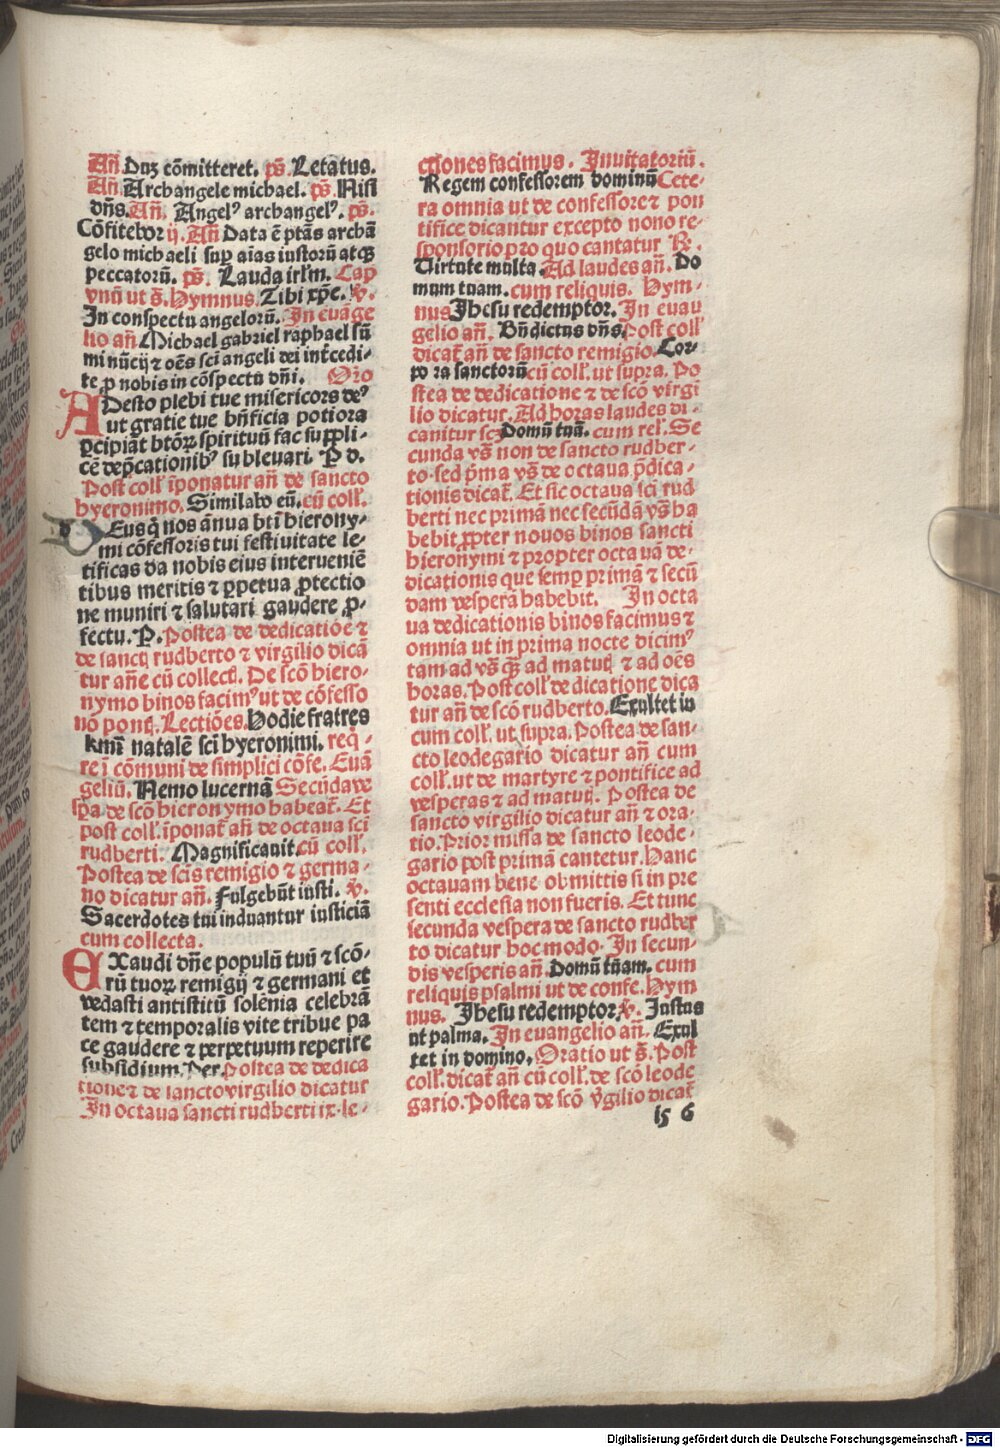 Añ. Duȝ cōmitteret. ps̄. Letatus.
Añ. Archangele michael. ps̄. Nisi
dn̄s. Añ. Angelꝰ archangelꝰ. ps̄.
Cōfitebor ij. Añ Data ē ptās archā
gelo michaeli suꝑ aīas iustorū atqꝫ
peccatorū. ps̄. Lauda irlm̄. Cap
vnū ut s̄. Hymnus. Tibi xp̄e. v̄.
In conspectu angelorū. In euāge
lio añ Michael gabriel raphael sū
mi nūcij ⁊ oēs sci angeli dei int̄cedi-
te ꝓ nobis in cōspectu dn̄i. Orō
ADesto plebi tue misericors deꝰ
ut gratie tue bn̄ficia potiora
ꝑcipiāt btōꝝ spirituū fac suppli-
cē dep̄cationibꝰ subleuari. P d.
Post coll̄ īponatur añ de sancto
hyeronimo. Similabo eū. cū coll̄.
DEus q̄ nos ānua bt̄i hierony-
mi cōfessoris tui festiuitate le-
tificas da nobis eius interueniē
tibus meritis ⁊ ꝑpetua ꝓtectio
ne muniri ⁊ salutari gaudere ꝓ-
fectu. P. Postea de dedicatiōe ⁊
de sancti rudberto ⁊ virgilio dicā
tur añe cū collect̄. De scō hiero-
nymo binos facimꝰ ut de cōfesso
nō pont̄. Lectiōes. Hodie fratres
kmi natalē sci hyeronimi. req̄-
re ī cōmuni de simplici cōfe. Euā
geliū. Nemo lucernā Secūda ve
sp̄a de scō hieronymo habeat̄. Et
post coll̄. īponat̄ añ de octaua sci
rudberti. Magnificauit. cū coll̄.
Postea de scīs remigio ⁊ germa-
no dicatur añ. Fulgebūt iusti. v̄.
Sacerdotes tui induantur iusticiā
cum collecta.
EXaudi dn̄e populū tuū ⁊ scō-
rū tuoꝝ remigij ⁊ germani et
vedasti antistitū solēnia celebrā
tem ⁊ temporalis vite tribue pa
ce gaudere ⁊ perpetuum reperire
subsidium. Per. Postea de dedica
tione ⁊ de sancto virgilio dicatur
In octaua sancti rudberti ix. le-
ctiones facimus. Inuitatoriū.
Regem confessorem dominū Cete-
ra omnia ut de confessore ⁊ pon
tifice dicantur excepto nono re-
sponsorio pro quo cantatur R̄.
Uirtute multa. Ad laudes añ. Do
mum tuam. cum reliquis. Hym-
nus Jhesu redemptor. In euau
gelio añ. Bn̄dictus dn̄s. Post coll̄
dicat̄ añ de sancto remigio. Cor-
po ra sanctorū cū coll̄. ut supra. Po
stea de dedicatione ⁊ de scō virgi
lio dicatur. Ad horas laudes di-
canitur scȝ Domū tuā. cum rel̄. Se
cunda vs̄ non de sancto rudber-
to. sed p̄ma vs̄ de octaua p̄dica-
tionis dicat̄. Et sic octaua sci rud
berti nec primā nec secūdā vs̄ ha
bebit ꝓpter nouos binos sancti
hieronymi ⁊ propter octaua de-
dicationis que semꝑ primā ⁊ secū
dam vesperā habebit. In octa
ua dedicationis binos facimus ⁊
omnia ut in prima nocte dicimꝰ
tam ad vs̄ qꝫ ad matut̄ ⁊ ad oēs
horas. Post coll̄ de dicatione dica
tur añ de scō rudberto. Exultet in
cum coll̄. ut supra. Postea de san-
cto leodegario dicatur añ cum
coll̄. ut de martyre ⁊ pontifice ad
vesperas ⁊ ad matut̄. Postea de
sancto virgilio dicatur añ ⁊ ora-
tio. Prior missa de sancto leode-
gario post primā cantetur. Hanc
octauam bene obmittis si in pre
senti ecclesia non fueris. Et tunc
secunda vespera de sancto rudber
to dicatur hoc modo. In secun-
dis vesperis añ Domū tuam. cum
reliquis psalmi ut de confe. Hym
nus. Jhesu redemptor. v̄. Justus
ut palma. In euangelio añ. Exul
tet in domino. Oratio ut s̄. Post
coll̄. dicat̄ añ cū coll̄. de scō leode
gario. Postea de scō v̄gilio dicat̄
15 6
Digitalisierung gefördert durch die Deutsche Forschungsgemeinschaft - DFG